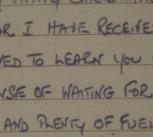 OR I HAVE RECEIVE
ED TO LEARN YOU
NSE OF WAITING FOR
AND PLENTY OF FUEL